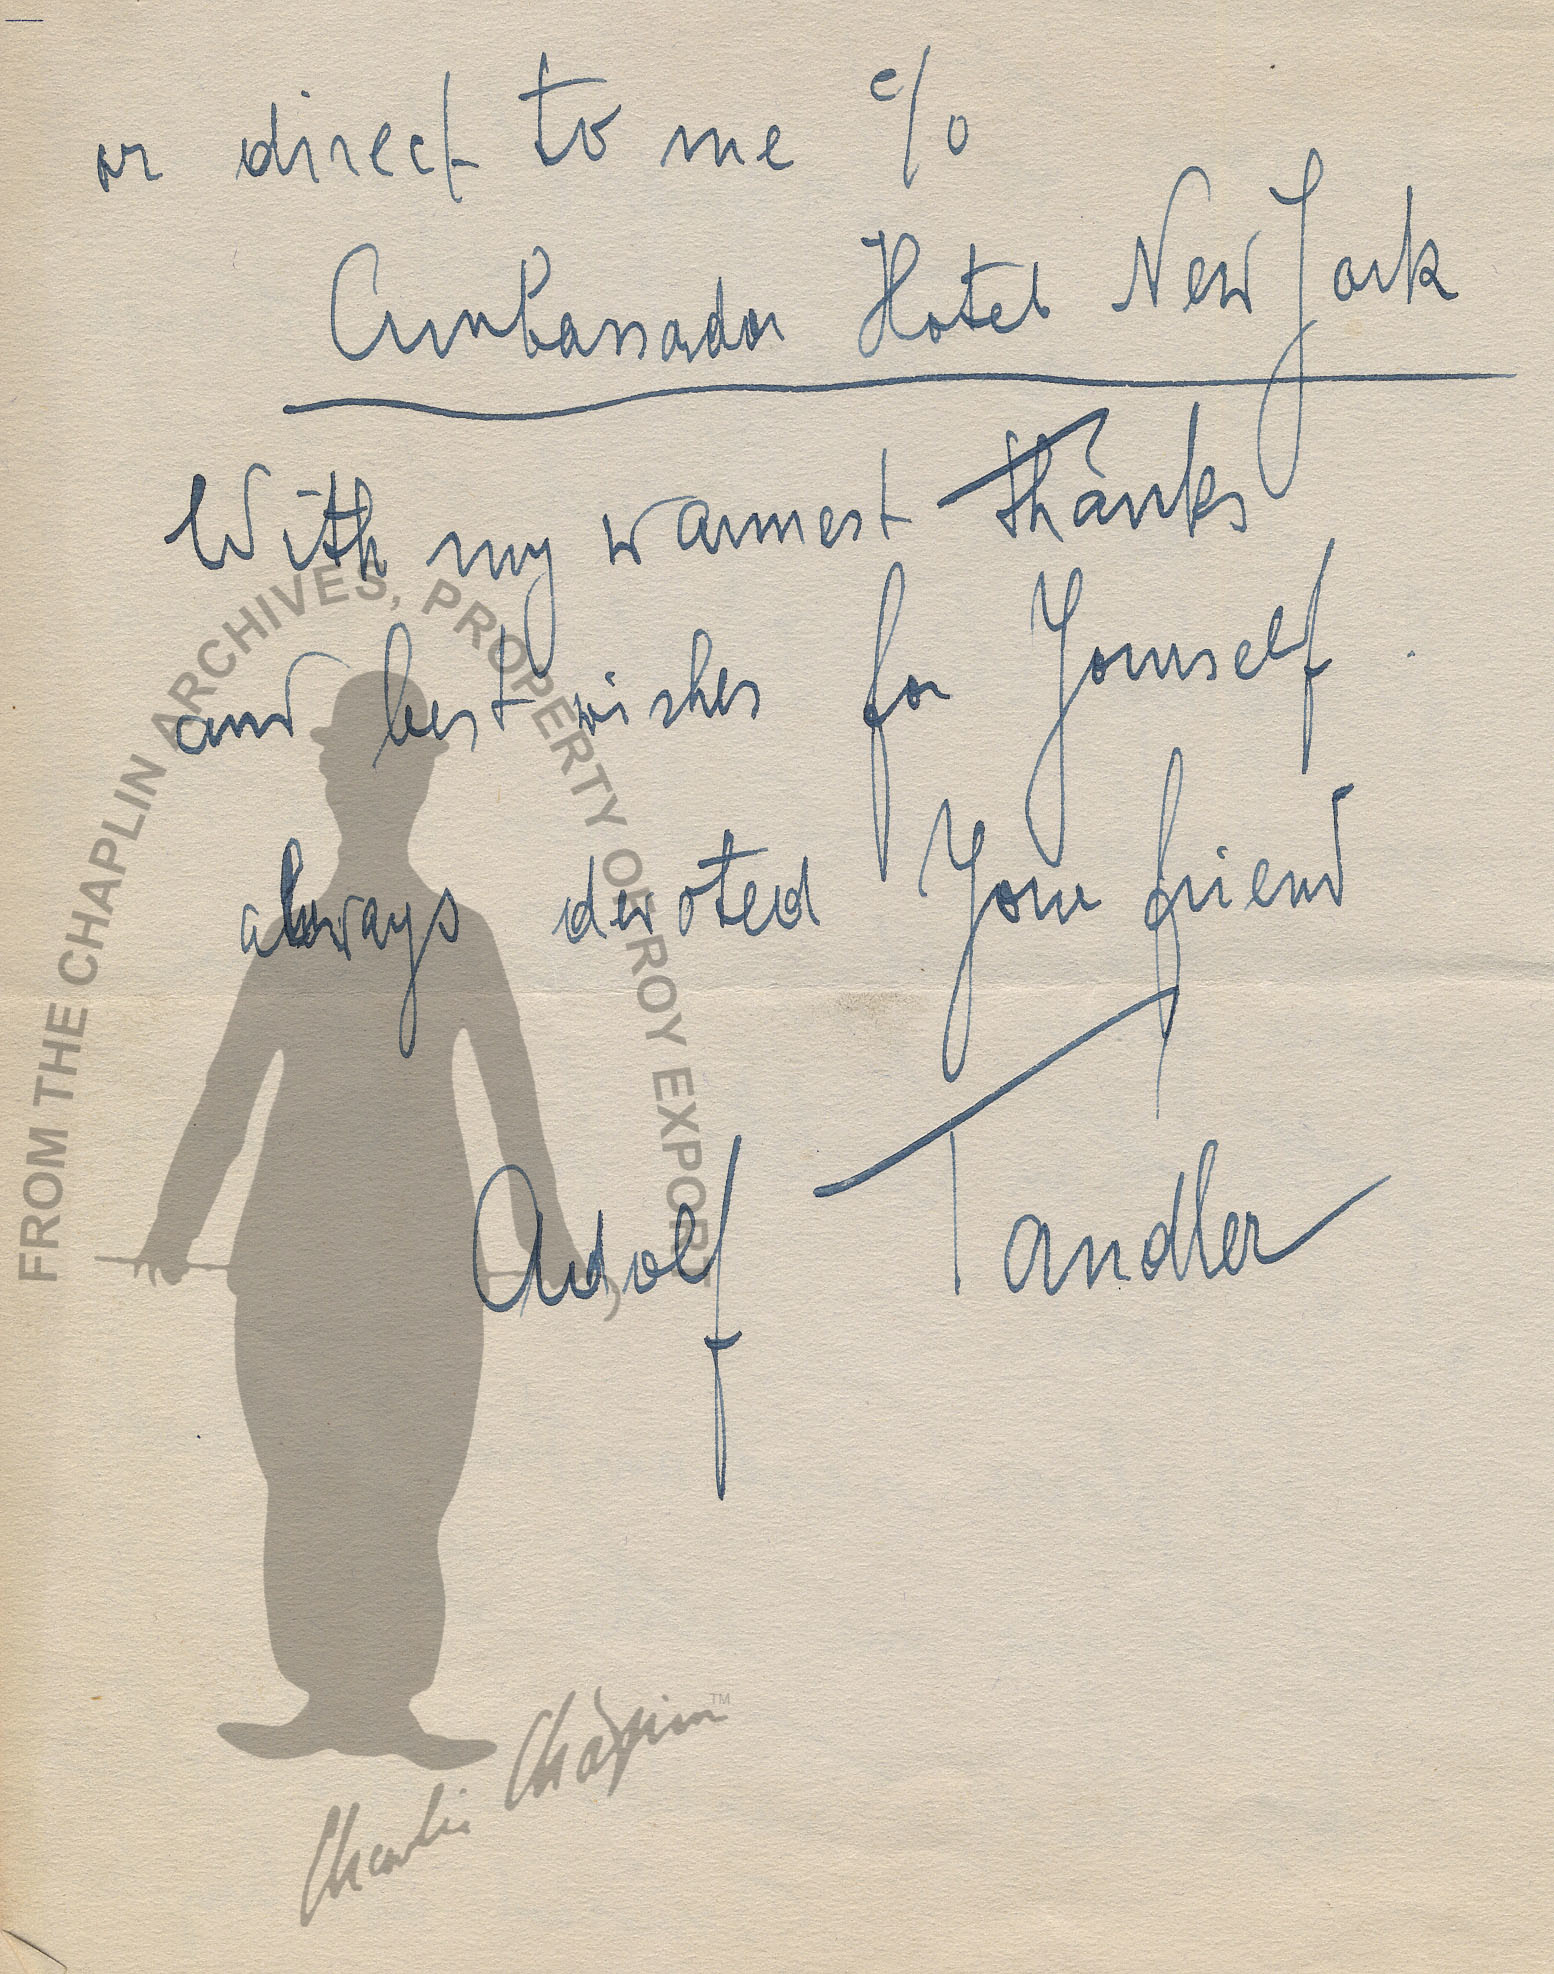 or direct to me c/o
Ambassador Hotel New York
With my warmest thanks
and best wishes for Yourself.
always devoted Your friend
Adolf Tandler
FROM THE CHAPLIN ARCHIVES, PROPERTY OF ROY EXPORT
Charlie Chaplin™